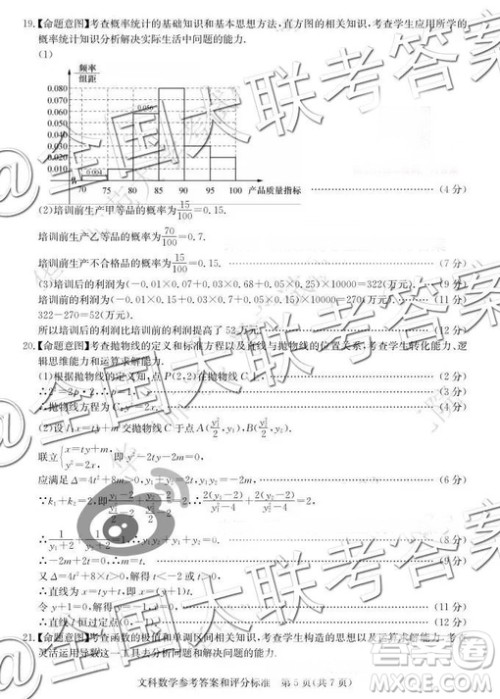 19.【命题意图】考查概率统计的基础知识和基本思想方法,直方图的相关知识,考查学生应用所学的
概率统计知识分析解决实际生活中问题的能力.
(1)
频率
组距
0.080
0.070
0.060
0.056
0.050
0.040
0.030
0.020
0.010
0.004
70 75 80 85 90 95 100 产品质量指标
(4 分)
(2)培训前生产甲等品的概率为15/100=0.15.
培训前生产乙等品的概率为70/100=0.7.
培训前生产不合格品的概率为15/100=0.15. (7 分)
(3)培训后的利润为(-0.01×0.07+0.03×0.68+0.05×0.25)×10000=322(万元). (9 分)
培训前的利润为(-0.01×0.15+0.03×0.7+0.05×0.15)×10000=270(万元). (11 分)
322-270=52(万元).
所以培训后的利润比培训前的利润提高了 52 万元. (12 分)
20.【命题意图】考查抛物线的定义和标准方程以及直线与抛物线的位置关系,考查学生转化能力、逻
辑思维能力和运算求解能力.
(1)根据抛物线的定义知,点 P(2,2)在抛物线 C 上, (2 分)
∴2²=2p·2,∴p=1, (3 分)
∴抛物线方程为 C:y²=2x. (4 分)
(2)设 l:x=ty+m 交抛物线 C 于点 A(y₁²/2,y₁),B(y₂²/2,y₂).
联立{x=ty+m, y²=2x, 即 y²-2ty-2m=0,
应满足 Δ=4t²+8m>0,y₁+y₂=2t,y₁y₂=-2m. (6 分)
∵k₁+k₂=2,即
∴-2m+2t=0,∴m=t. (9 分)
又 Δ=4t²+8×t>0,解得 t<-2 或 t>0.
∴直线为 x=ty+t,即 x=(y+1)t.
令 y+1=0,解得 (11 分)
∴直线 l 恒过定点 (12 分)
21.【命题意图】考查函数的极值和单调区间相关知识,考查学生构造的思想以及运算求解能力.考查
灵活运用导数这一工具去分析、解决问题能力.
文科数学参考答案和评分标准 第 5 页(共 7 页)
@全国大联考答案